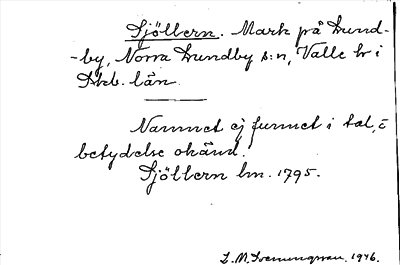 Sjöllern. Mark på Lund-
-by, Norra Lundby s:n, Valle hr i
Skb. län.
Namnet ej funnet i tal,
betydelse okänd.
Sjöllern lm. 1795.
L. M. Svenungsson. 1946.